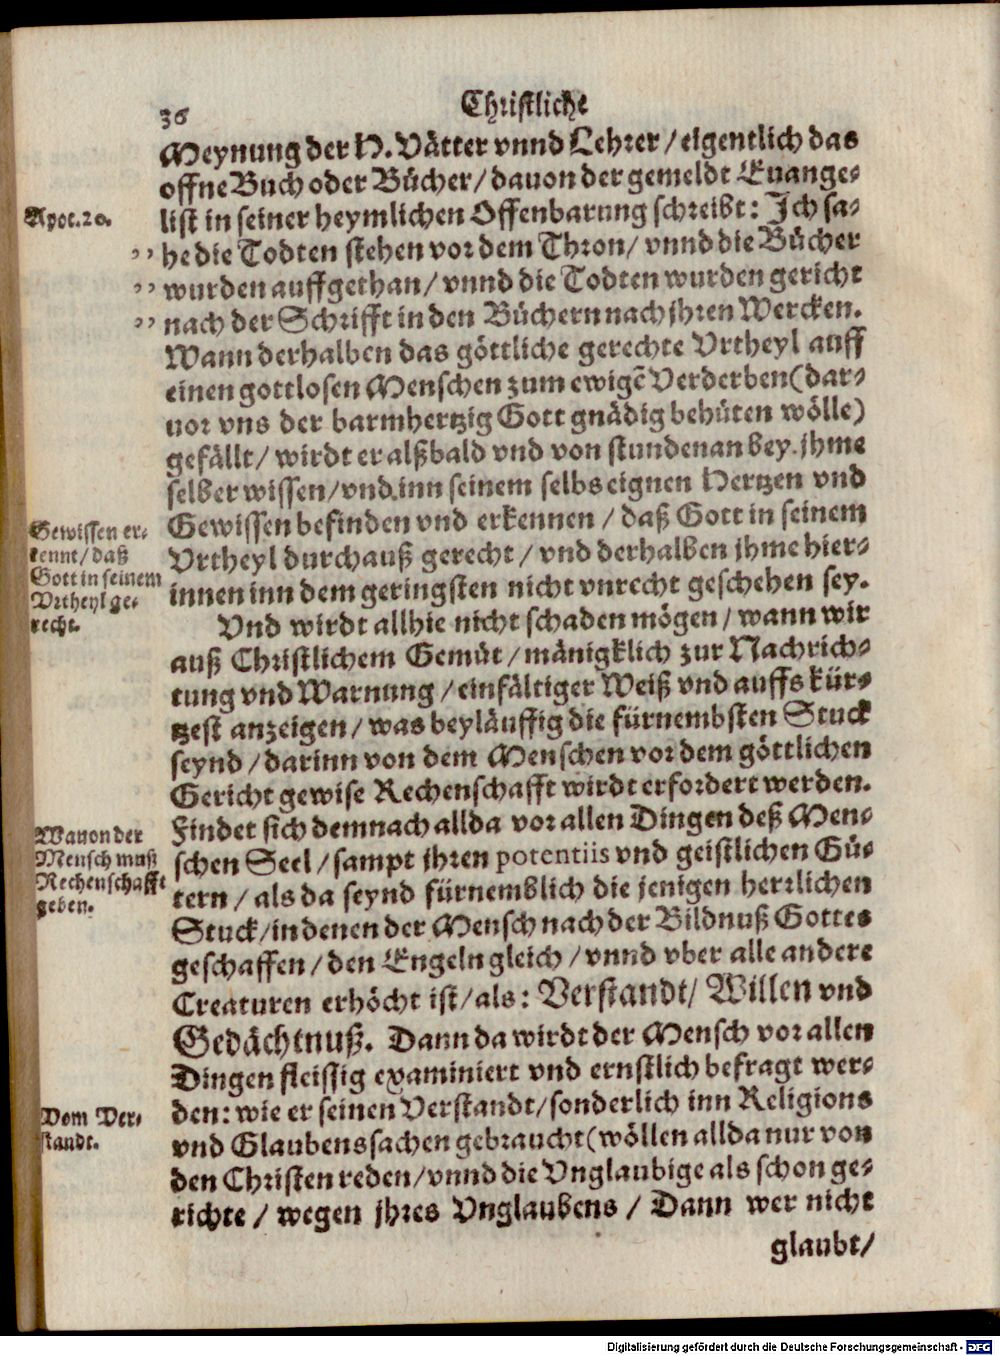 36
Christliche
Meynung der H. Vätter vnnd Lehrer / eigentlich das
offne Buch oder Bücher / dauon der gemeldt Euange-
Apoc. 20.
list in seiner heymlichen Offenbarung schreibt: Ich sa-
,, he die Todten stehen vor dem Thron / vnnd die Bücher
,, wurden auffgethan / vnnd die Todten wurden gericht
,, nach der Schrifft in den Büchern nach jhren Wercken.
Wann derhalben das göttliche gerechte Vrtheyl auff
einen gottlosen Menschen zum ewigẽ Verderben (dar-
uor vns der barmhertzig Gott gnädig behüten wölle)
gefällt / wirdt er alßbald vnd von stundenan bey jhme
selber wissen / vnd inn seinem selbs eignen Hertzen vnd
Gewissen er-
kennt / daß
Gott in seinem
Vrtheyl ge-
recht.
Gewissen befinden vnd erkennen / daß Gott in seinem
Vrtheyl durchauß gerecht / vnd derhalben jhme hier-
innen inn dem geringsten nicht vnrecht geschehen sey.
Vnd wirdt allhie nicht schaden mögen / wann wir
auß Christlichem Gemüt / mänigklich zur Nachrich-
tung vnd Warnung / einfältiger Weiß vnd auffs kür-
tzest anzeigen / was beyläuffig die fürnembsten Stuck
seynd / darinn von dem Menschen vor dem göttlichen
Gericht gewise Rechenschafft wirdt erfordert werden.
Wauon der
Mensch muß
Rechenschafft
geben.
Findet sich demnach allda vor allen Dingen deß Men-
schen Seel / sampt jhren potentiis vnd geistlichen Gü-
tern / als da seynd fürnemblich die jenigen herrlichen
Stuck / in denen der Mensch nach der Bildnuß Gottes
geschaffen / den Engeln gleich / vnnd vber alle andere
Creaturen erhöcht ist / als: Verstandt / Willen vnd
Gedächtnuß. Dann da wirdt der Mensch vor allen
Dingen fleissig examiniert vnd ernstlich befragt wer-
Vom Ver-
standt.
den: wie er seinen Verstandt / sonderlich inn Religions
vnd Glaubenssachen gebraucht (wöllen allda nur von
den Christen reden / vnnd die Vnglaubige als schon ge-
richte / wegen jhres Vnglaubens / Dann wer nicht
glaubt /
Digitalisierung gefördert durch die Deutsche Forschungsgemeinschaft - DFG